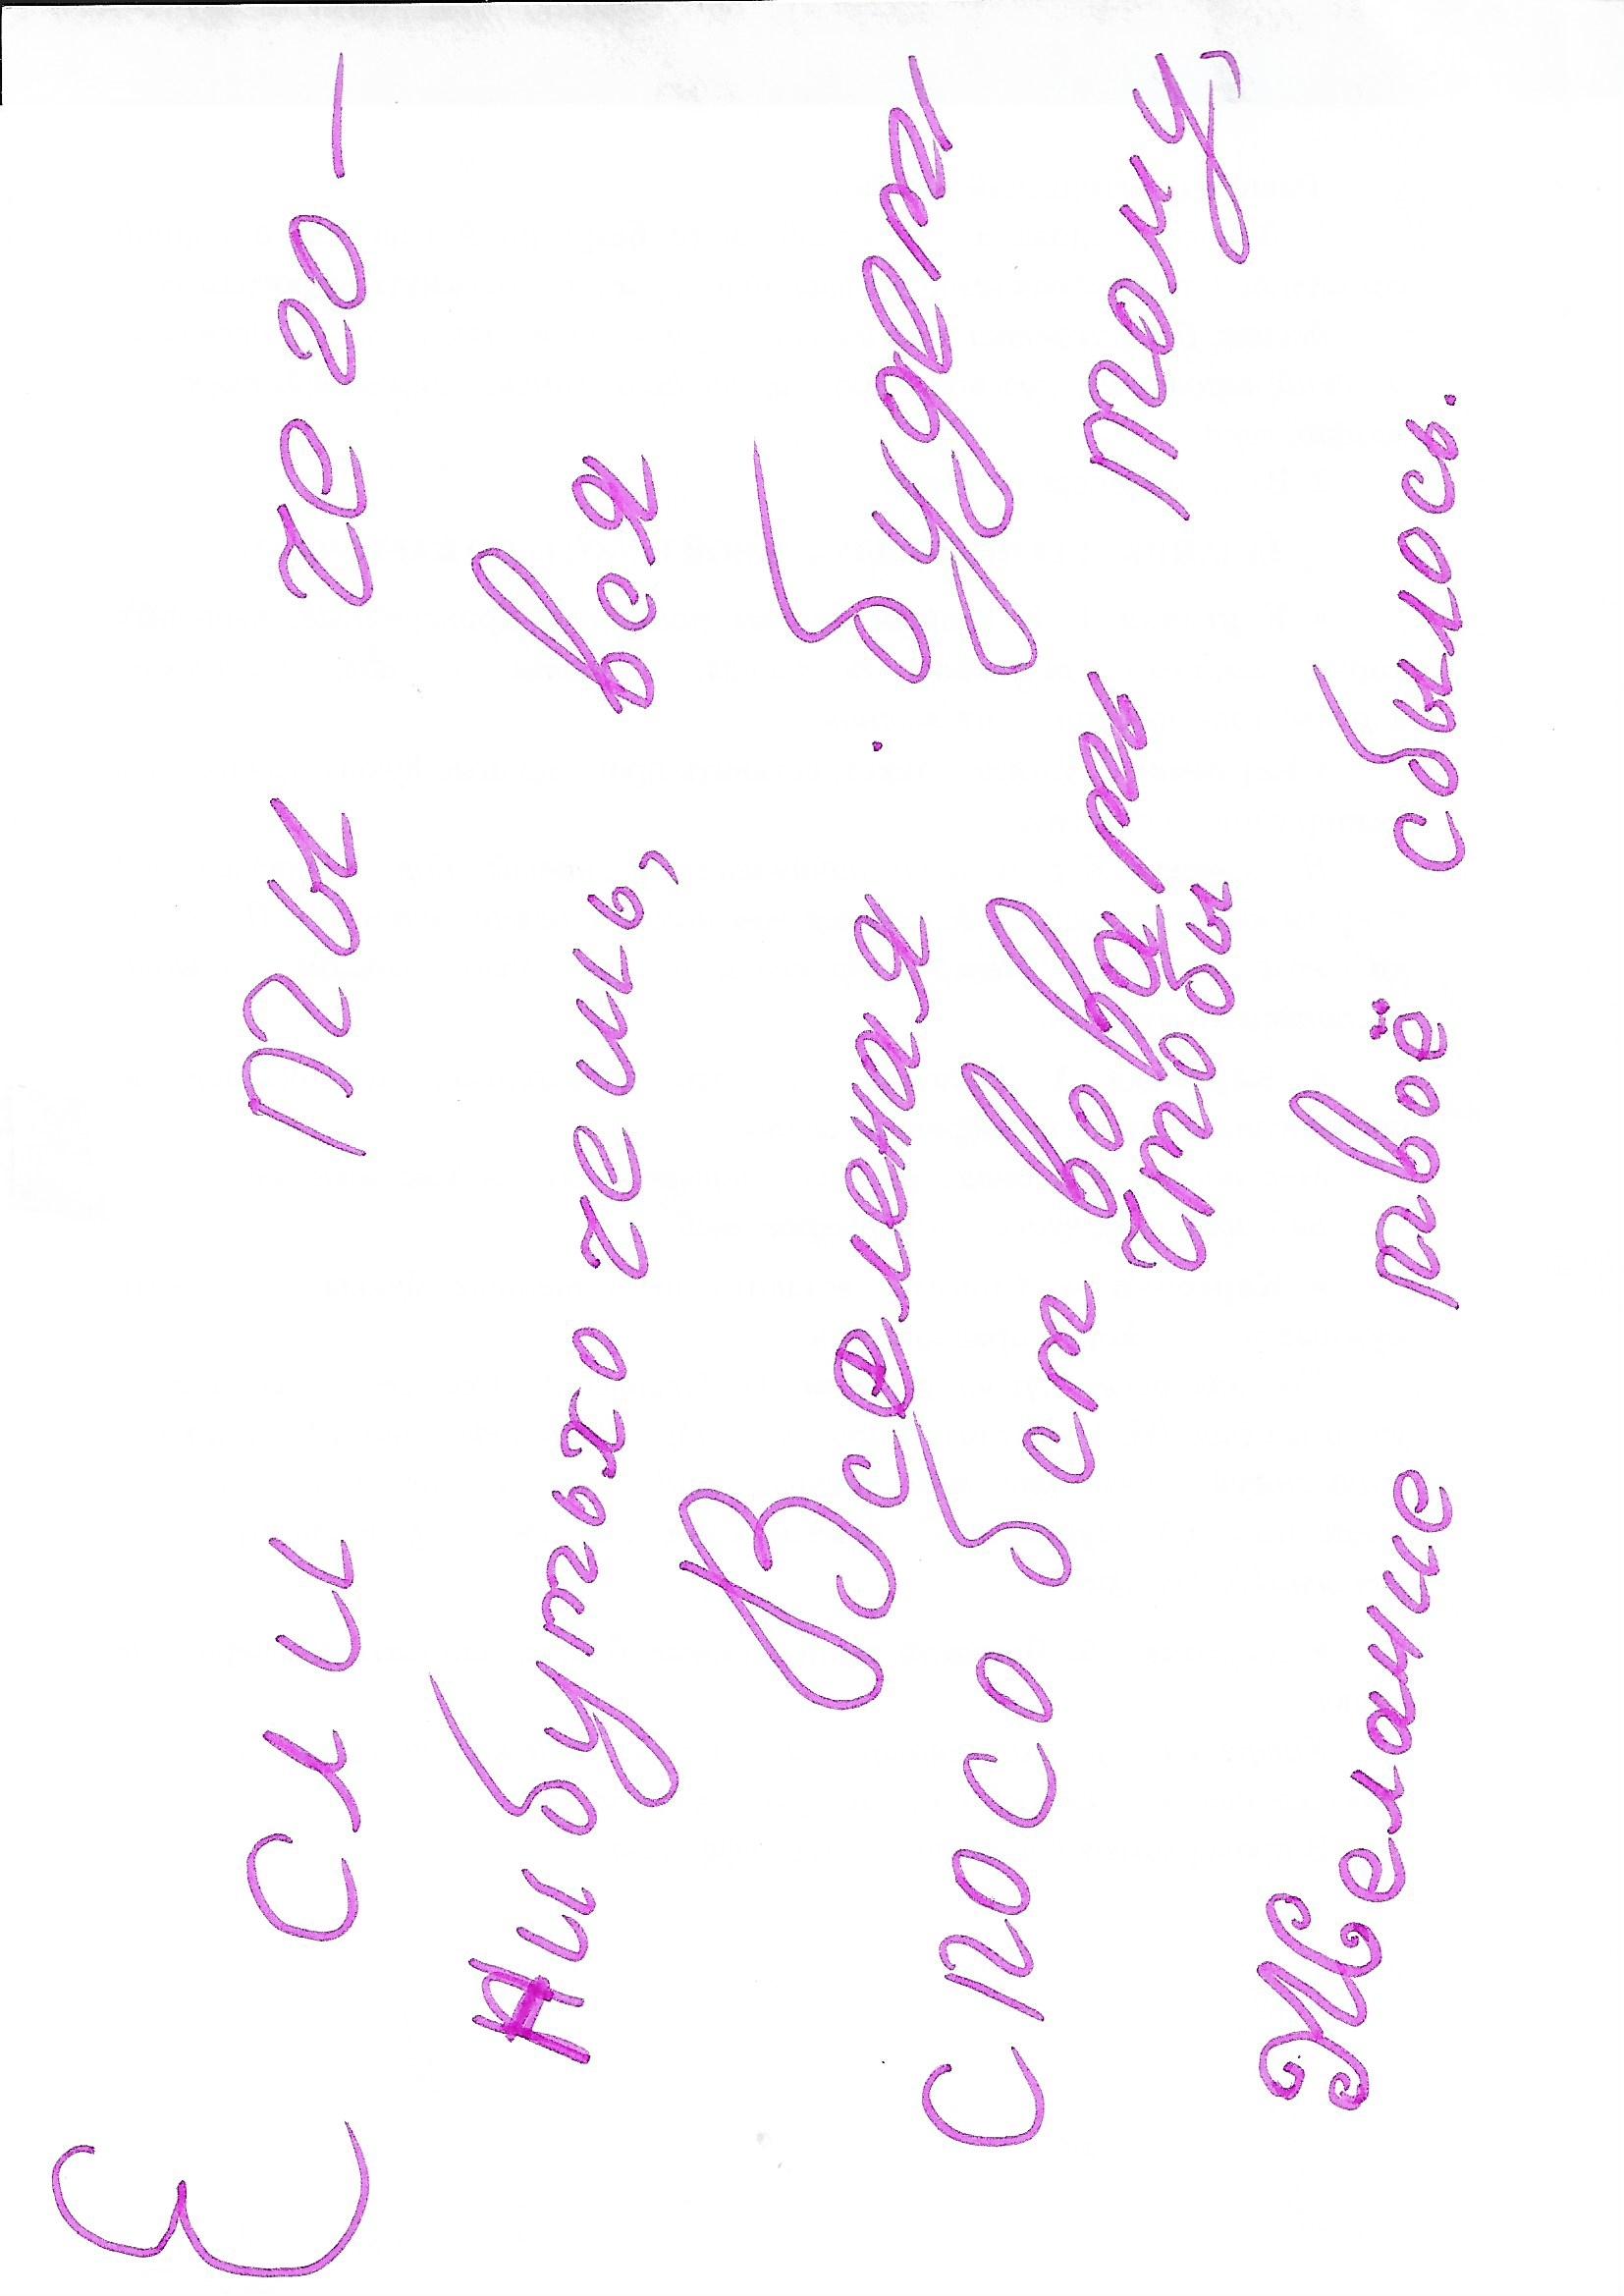 Если ты чего-
Нибутьхочешь, вся
Вселеная будет
способствовать тому,
чтобы
Желание твоё сбылось.